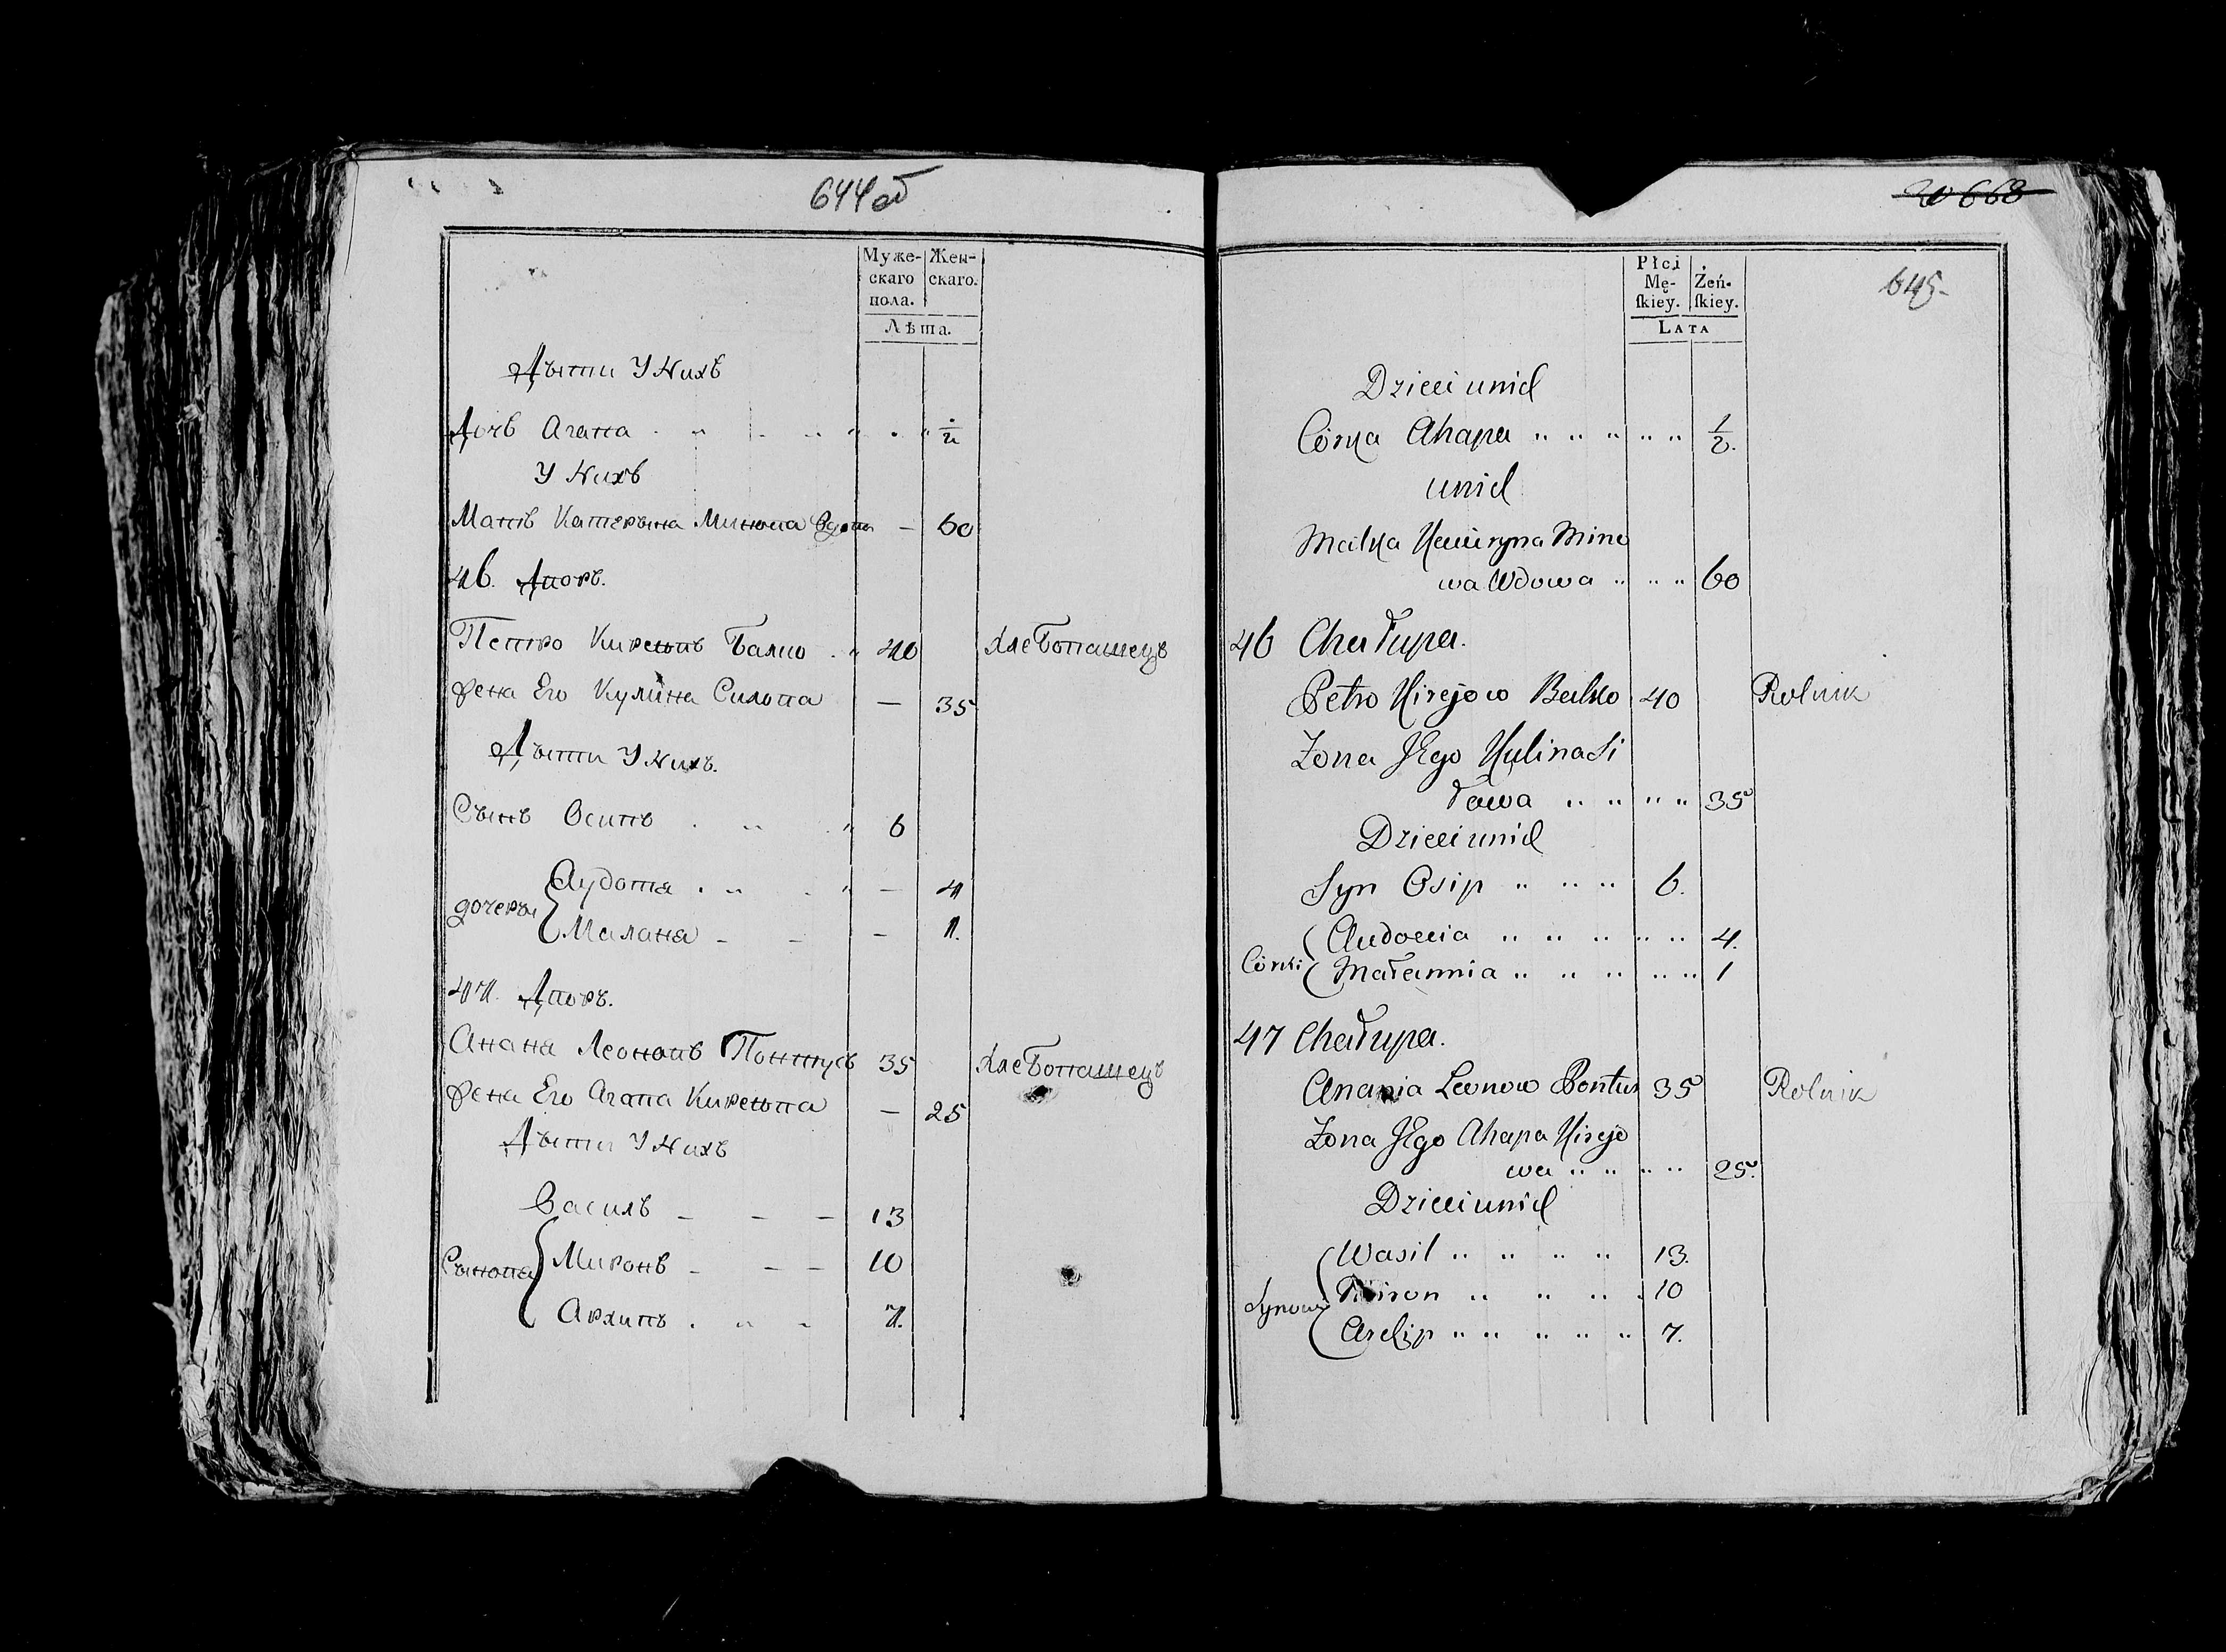 644 об
Муже-
скаго
пола.
Жен-
скаго.
Лѣта.
Дѣти У Нихъ
Дочь Агапа 1/2
У Нихъ
Мать Катерына Минова Вдова — 60
46. Дворъ.
Петро Киреевъ Балко 40 Хлебопашецъ
Жена Его Кулина Силова — 35
Дѣти У Нихъ.
Сынъ Осипъ 6
дочеры
Аудотя — 4
Малана — 1.
47. Дворъ.
Анана Леоновъ Понтусъ 35 Хлебопашецъ
Жена Его Агапа Киреева — 25
Дѣти У Нихъ
Василь 13
Сынова Миронъ 10
Архипъ 7.
668
645
Płci
Mę-
ſkiey.
Żeń-
ſkiey.
LATA
Dzieci unich
Córka Ahapa 1/2.
unich
Matka Kateryna Mino
wa Wdowa 60
46 Chałupa.
Petro Kirejow Balko 40 Rolnik
Żona JEgo Kulina Si
ława 35
Dzieci unich
Syn Osip 6.
Córki
Audocia 4.
Małannia 1
47 Chałupa.
Anania Leonow Pontus 35 Rolnik
Żona JEgo Ahapa Kireje
wa 25.
Dzieci unich
Wasil 13.
Synowie Miron 10
Archip 7.